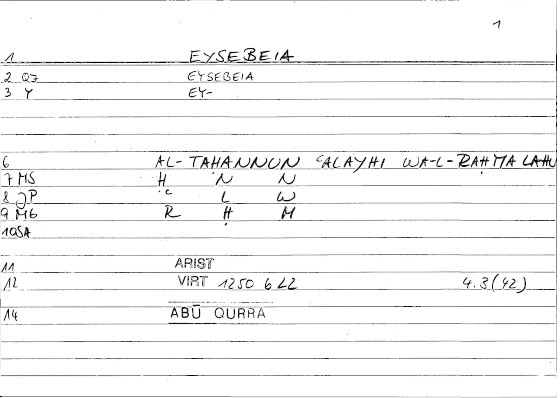 1
1 EYSEBEIA
2 Q7 EYSEBEIA
3 Y EY-
6 AL-TAḤANNUN ʿALAYHI WA-L-RAḤMA LAHU
7 MS Ḥ N N
8 JP ʿ L W
9 M6 R Ḥ M
10 SA
11 ARIST
12 VIRT 1250 b 22 4.3(42)
14 ABŪ QURRA